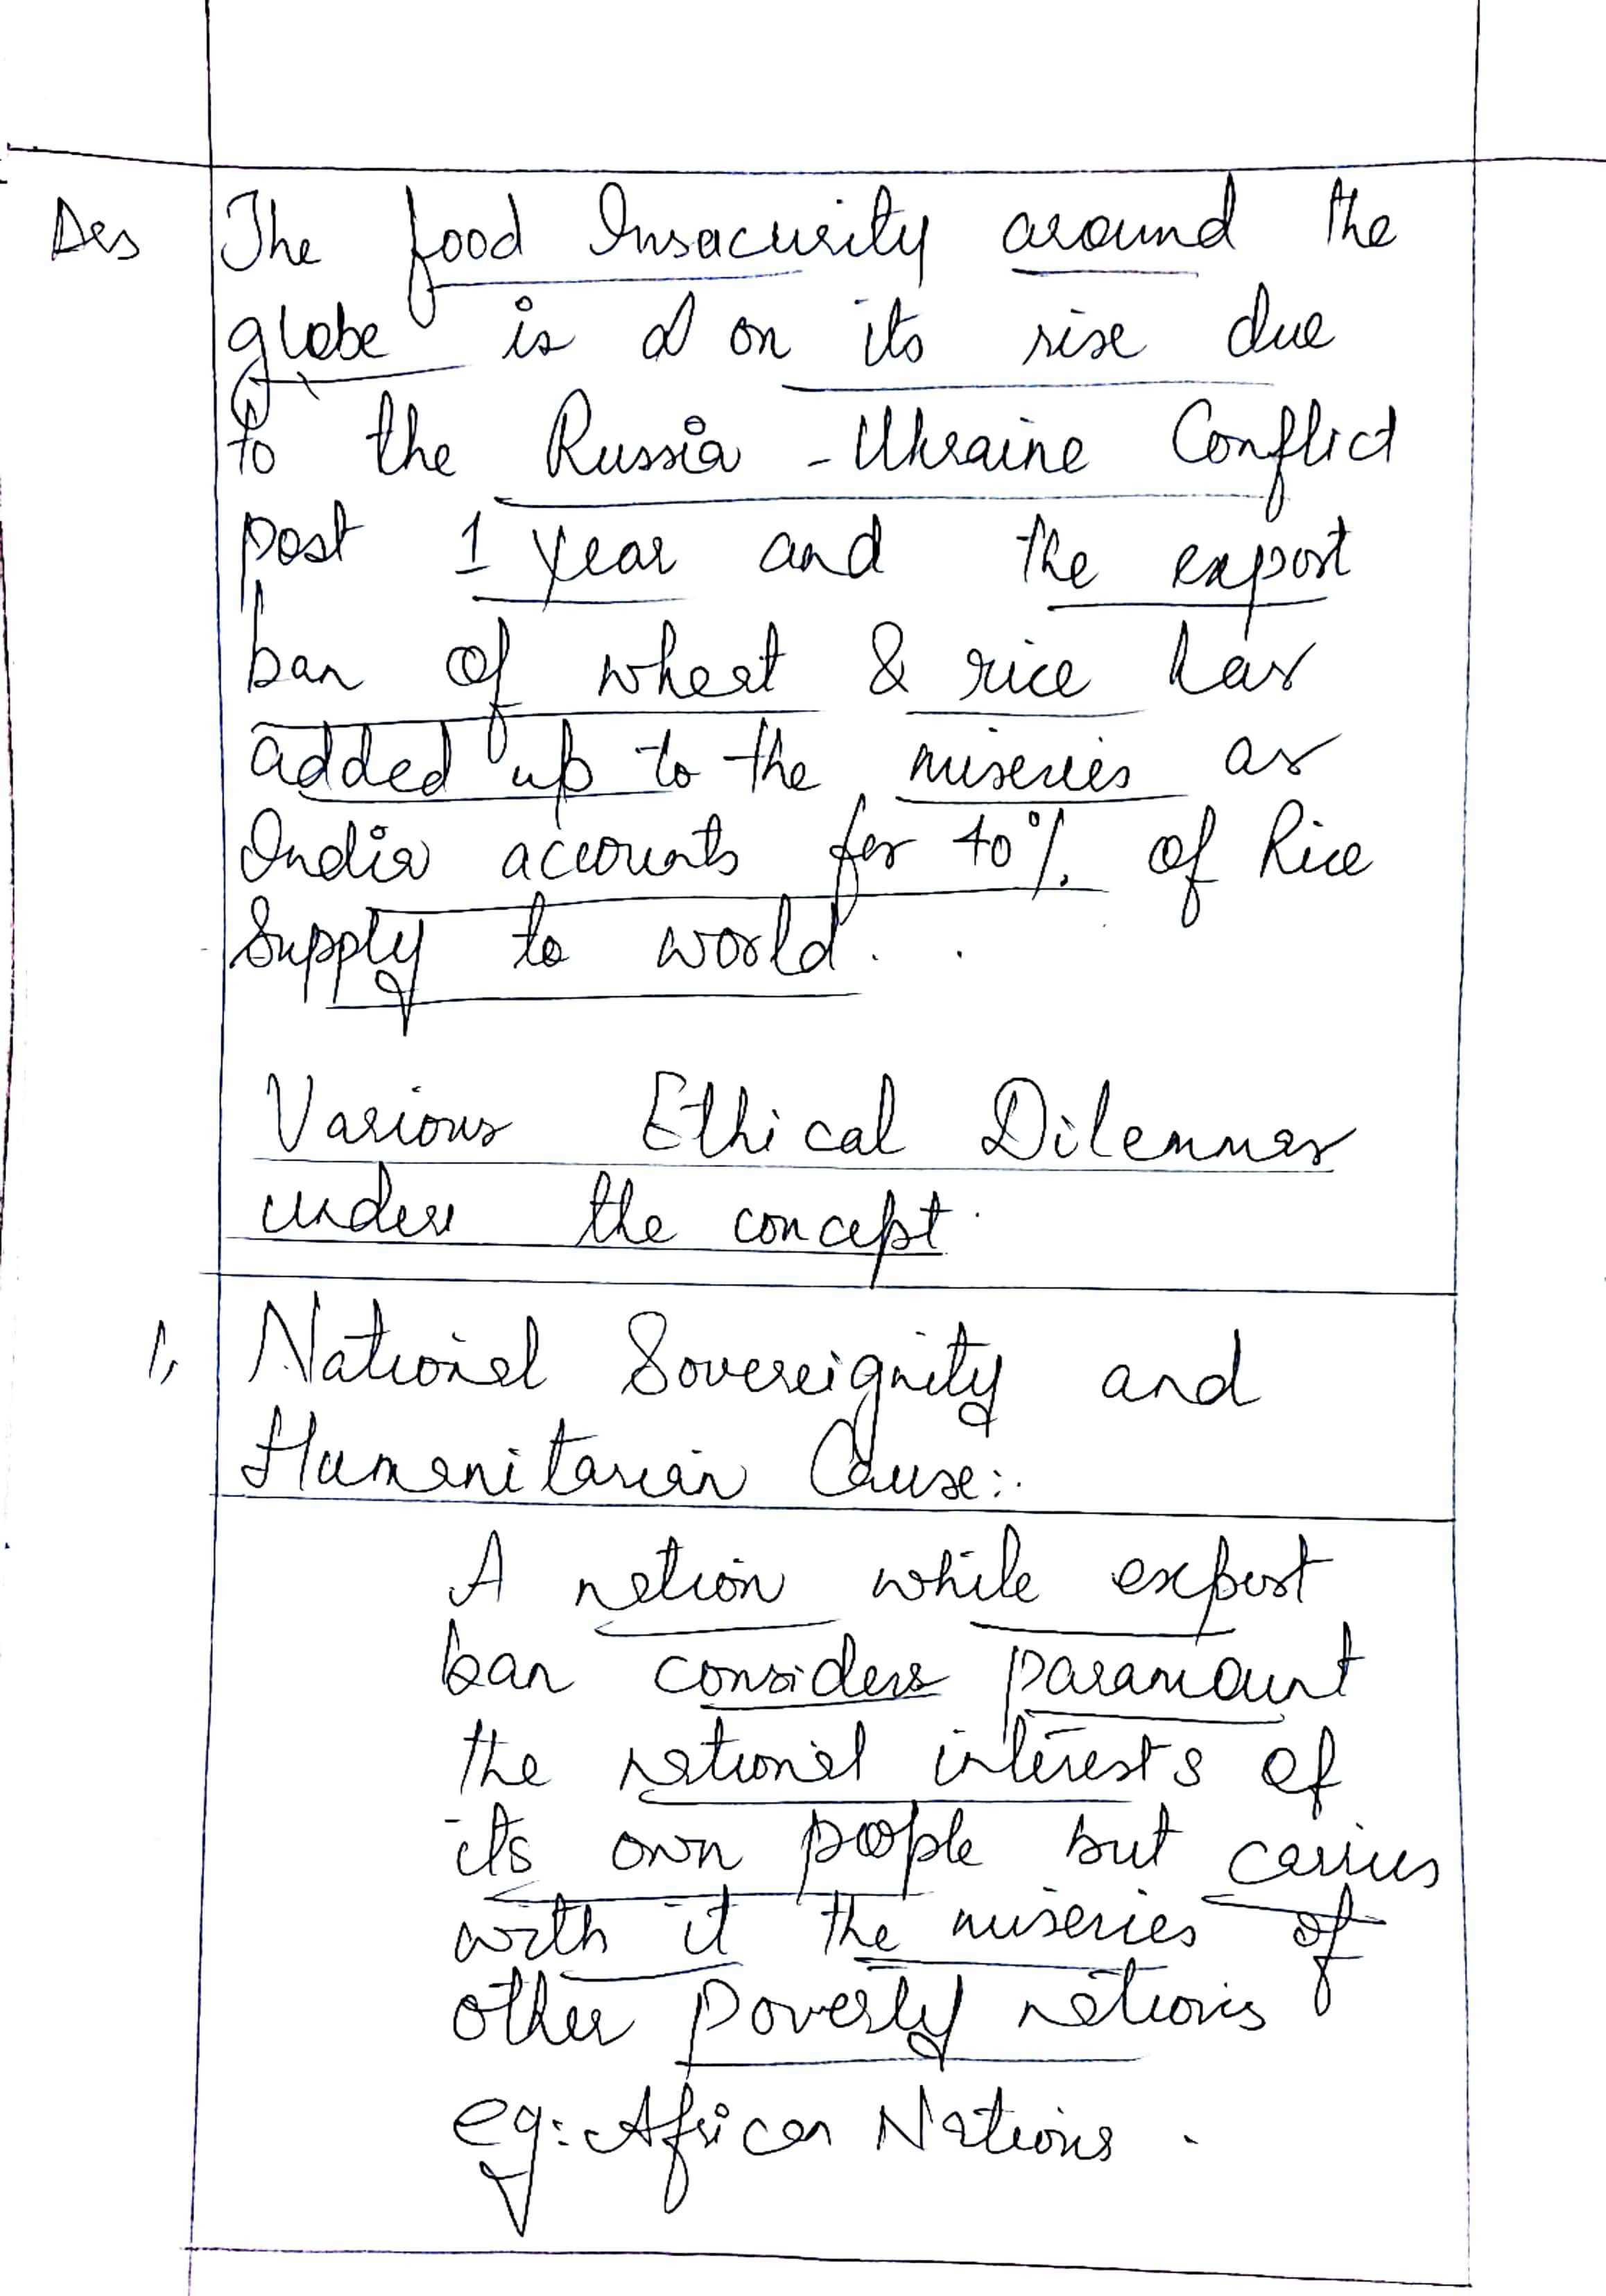 Ans The food Insacurity around the
globe is on its rise due
to the Russia - Ukraine Conflict
post 1 year and the export
ban of wheat & rice has
added up to the miseries as
India accounts for 40% of Rice
Supply to world.
Various Ethical Dilemmas
under the concept.
1, National Sovereignity and
Humanitarian Cause:
A nation while export
ban considers paramount
the national interests of
its own people but carries
with it the miseries of
other poverty nations
eg: African Nations.